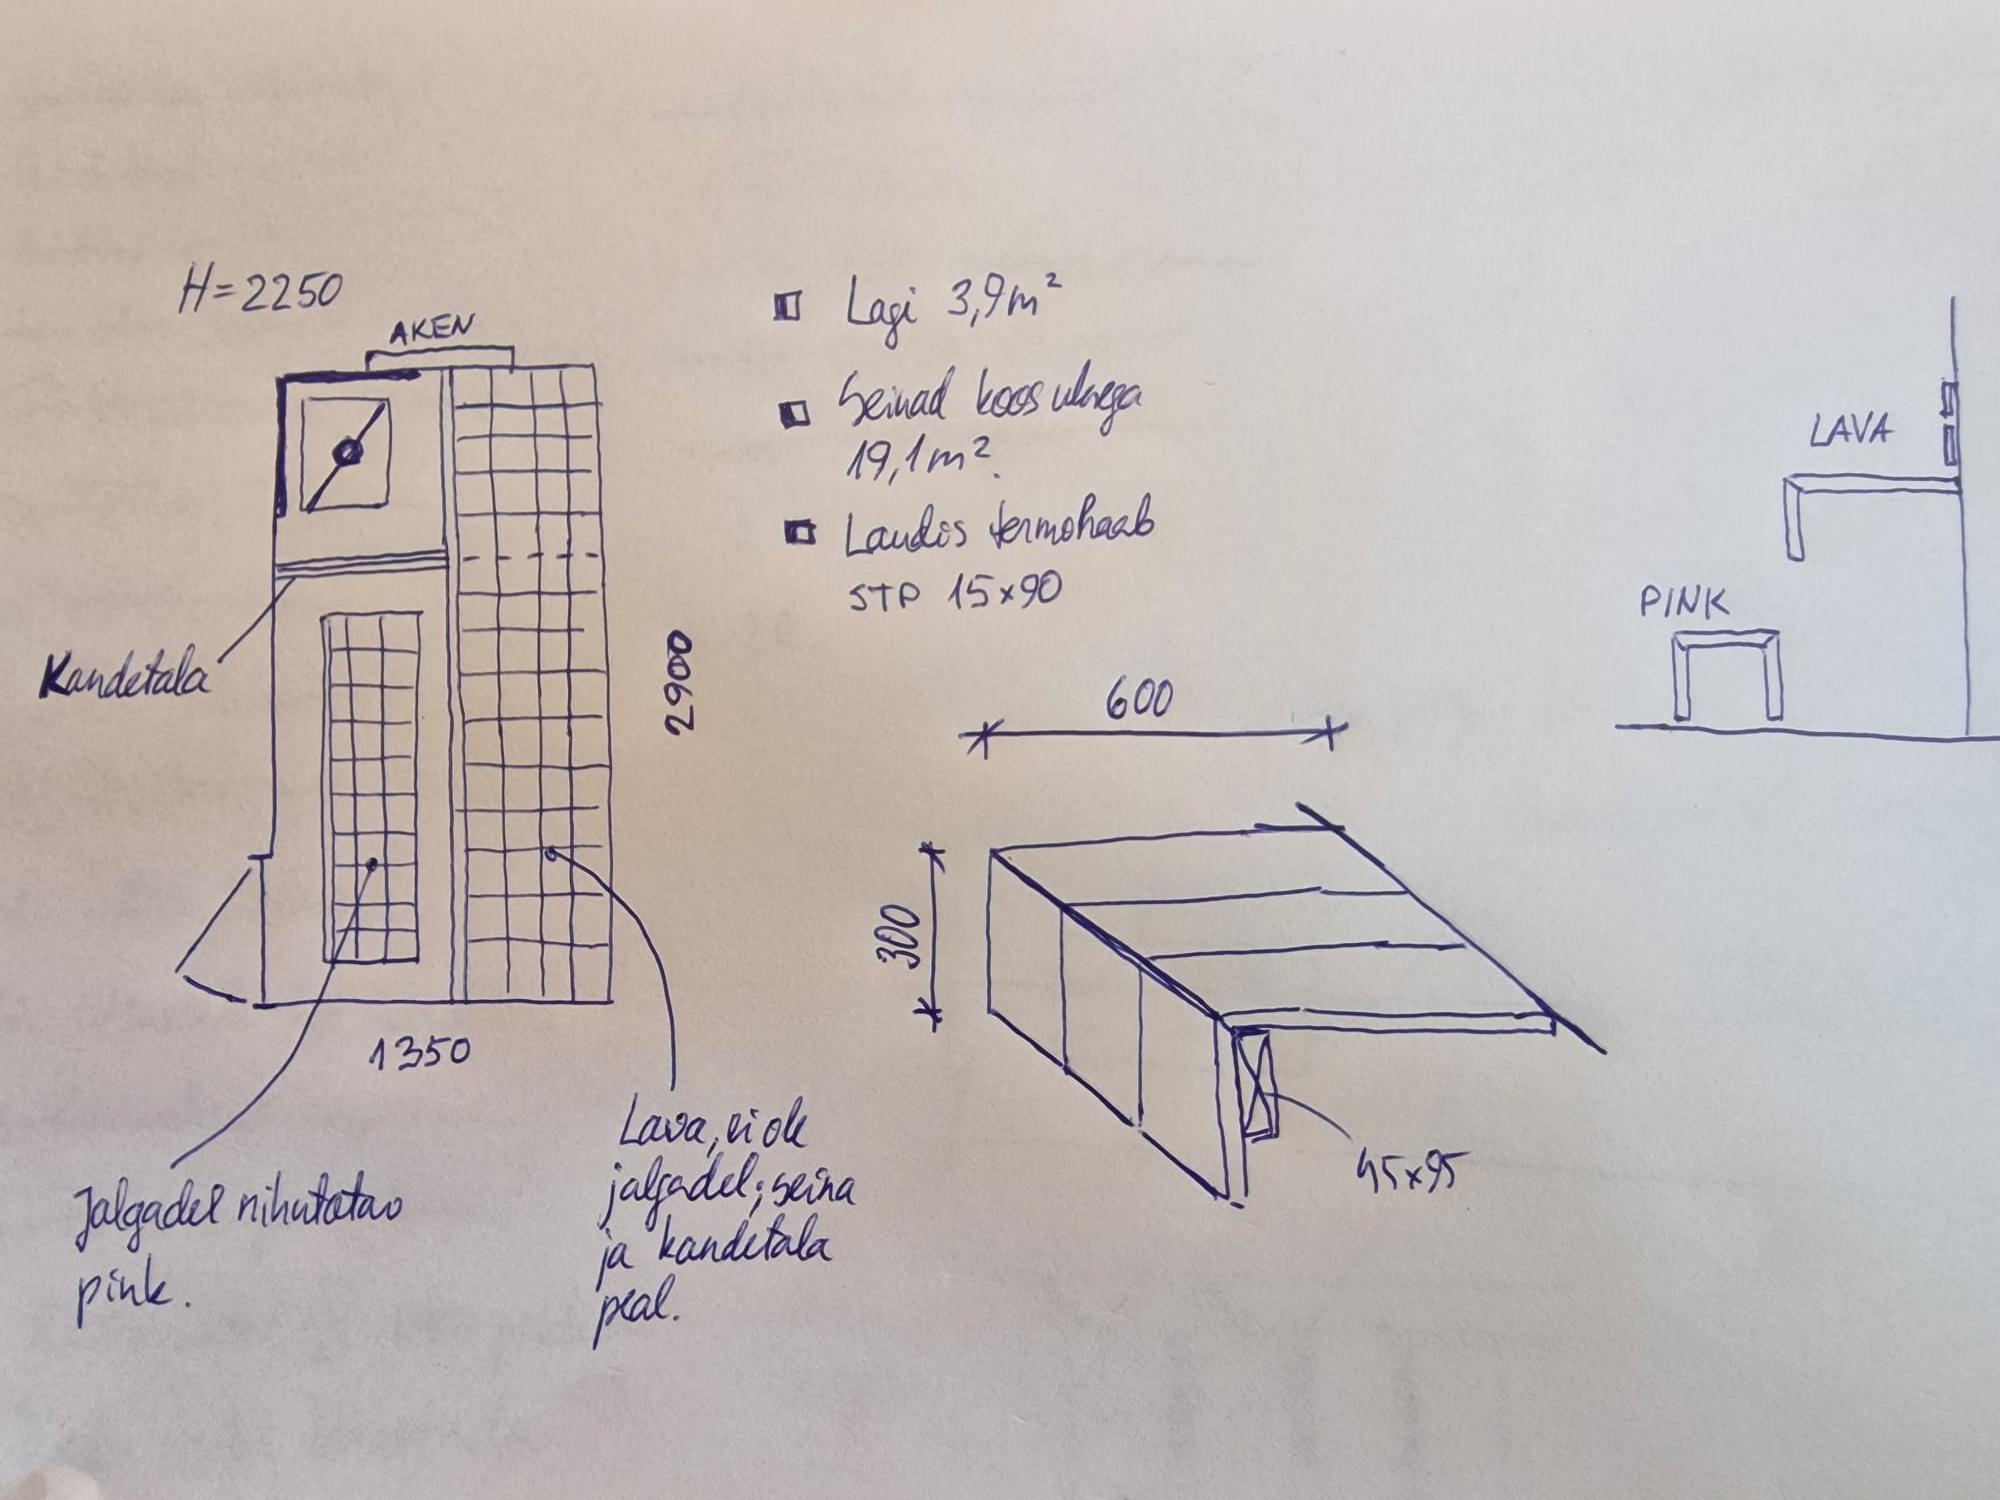 H=2250
AKEN
Kandetala
2900
1350
Jalgadel nihutatav
pink.
Lava, ei ole
jalgadel; seina
ja kandetala
peal.
Lagi 3,9m²
Seinad koos uksega
19,1m².
Laudis termohaab
STP 15x90
600
300
45x95
LAVA
PINK